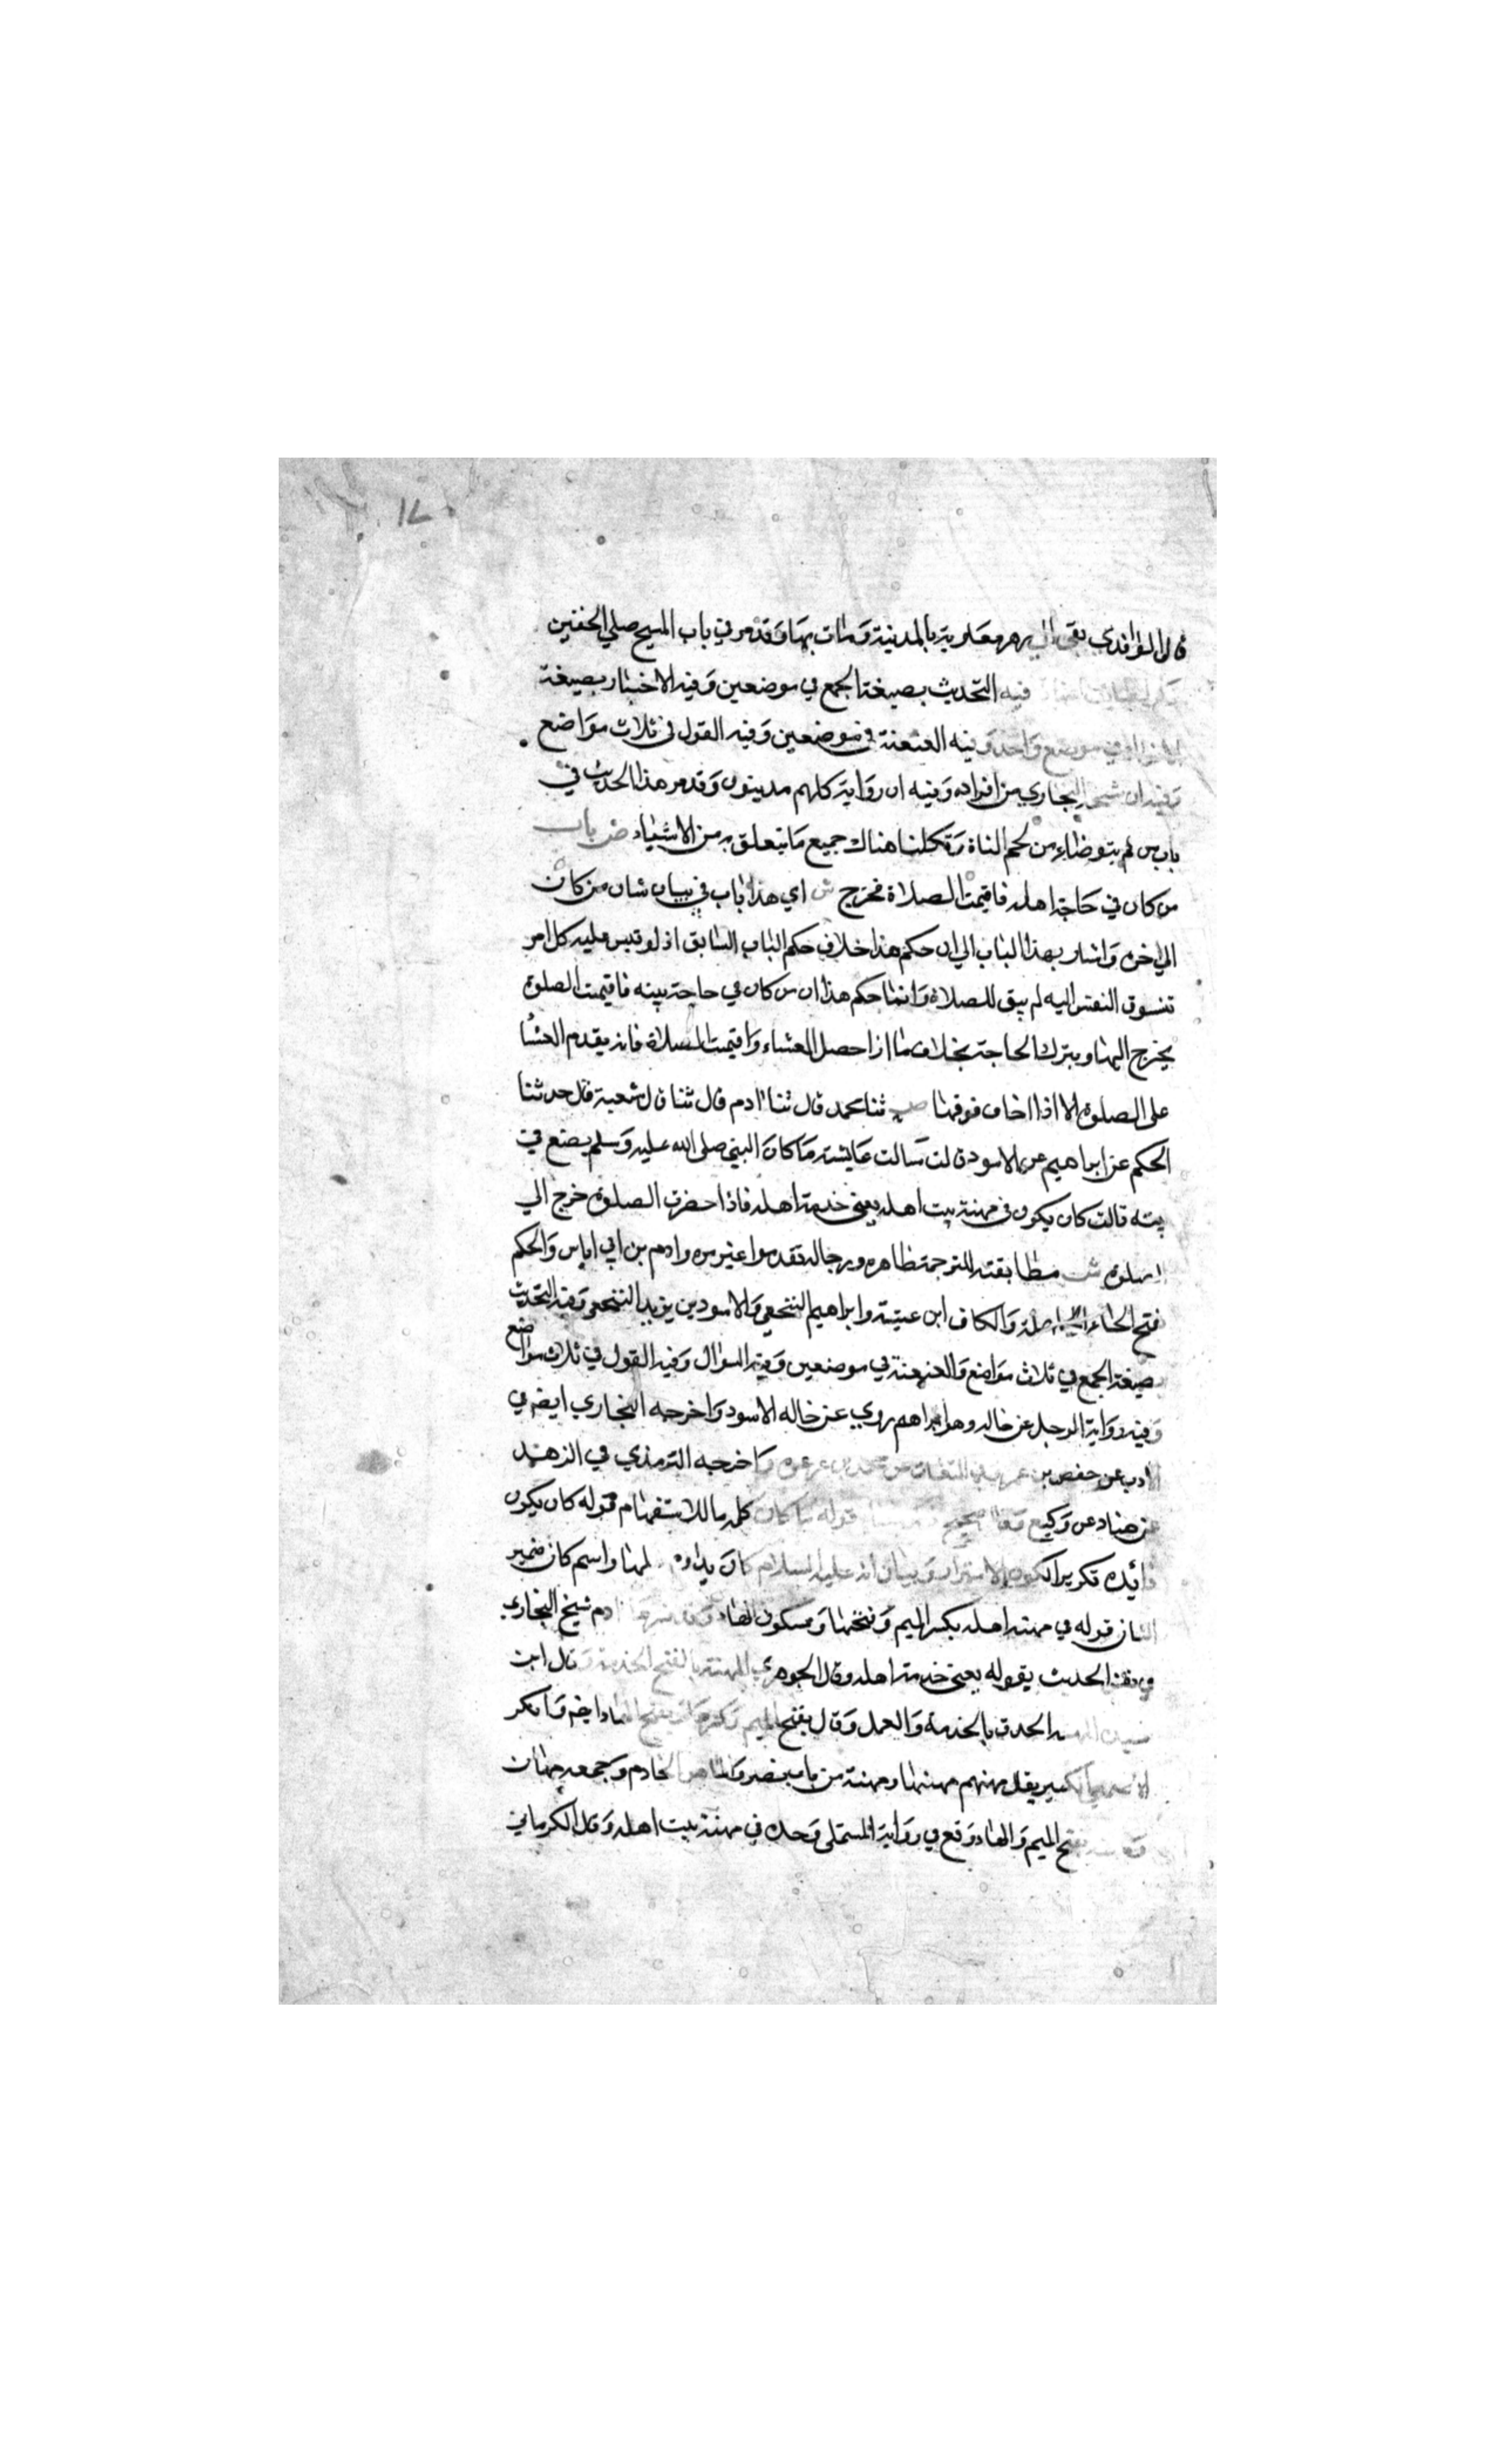 ١٧
قال الواقدي بقي الي دهر معاوية بالمدينة ومات بها وقد مر في باب المسح علي الخفين
فيه التحديث بصيغة الجمع في موضعين وفيه الاخبار بصيغة
في موضع واحد وفيه العنعنة في موضعين وفيه القول في ثلاث مواضع
وفيه ان شيخ البخاري من افراده وفيه ان رواية كلهم مدينون وقد مر هذا الحديث في
باب من لم يتوضاء من لحم الشاة وتكلمنا هناك جميع ما يتعلق به من الاشياء ص باب
من كان في حاجة اهله فاقيمت الصلاة فخرج ش اي هذا باب في بيان شان من كان
الي اخره واشار بهذا الباب الي ان حكم هذا خلاف حكم الباب السابق اذ لو قيس عليه كل امر
تتسوق النفس اليه لم يبق للصلاة وانما حكم هذا ان من كان في حاجة بيته فاقيمت الصلوة
يخرج اليها ويترك الحاجة بخلاف ما اذا حصل العشاء واقيمت الصلاة فانه يقدم العشا
علي الصلوة الا اذا اخاف فوقها ص ثنا محمد قال ثنا ادم قال ثنا قال شعبة قال حدثنا
الحكم عن ابراهيم عن الاسود قالت سالت عايشة ما كان النبي صلى الله عليه وسلم يصنع في
بيته قالت كان يكون في مهنة بيت اهله يعني خدمة اهله فاذا حضرت الصلوة خرج الي
الصلوة ش مطابقته للترجمة ظاهره ورجاله تقدموا غير مره وادم بن ابي اياس والحكم
فتح الحاء المهملة والكاف ابن عيتبة وابراهيم النخعي والاسود بن يزيد النخعي وفيه التحديث
بصيغة الجمع في ثلاث مواضع والعنعنة في موضعين وفيه السوال وفيه القول في ثلاث مواضع
وفيه رواية الرجل عن خاله وهو ابراهيم روي عن خاله الاسود واخرجه البخاري ايضم في
الادب عن حفص بن عمر وفي النفقات عن محمد بن عرعرة واخرجه الترمذي في الزهد
عن هناد عن وكيع وقال صحيح قوله ما كان كلمه ما للاستفهام قوله كان يكون
فائده تكرير الكون الاستمرار وبيان انه عليه السلام كان يداوم لمها واسم كان ضمير
الشان قوله في مهنة اهله بكسر الميم وفتحها وسكون الهاء وقد فسرها ادم شيخ البخاري
في نفس الحديث بقوله يعني خدمة اهله وقال الجوهري المهنة بالفتح الخدمة وقال ابن
الحدق بالخدمة والعمل وقال بفتح الميم وكسرها وبفتح الهاء ايضم وانكر
الاصمعي الكسر يقل مهنهم مهنتها ومهنة من باب نصر والماهن الخادم وجمعه مهان
بفتح الميم والهاء ووقع في رواية المستملي وحده في مهنة بيت اهله وقال الكرماني